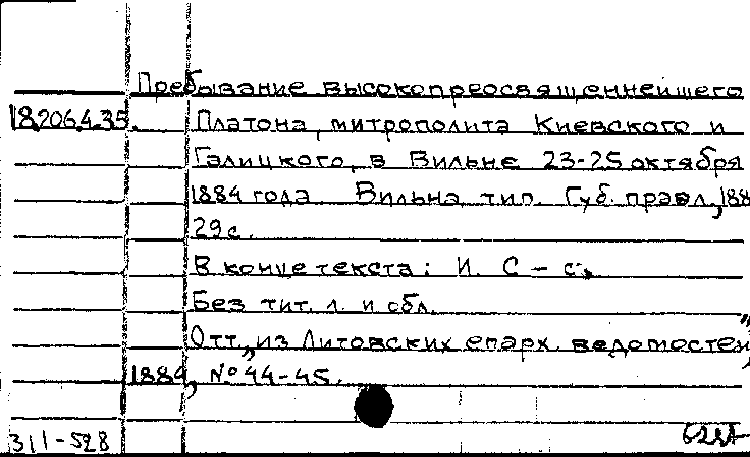 Пребывание высокопреосвященнейшего
18.206.4.35. Платона, митрополита Киевского и
Галицкого, в Вильне 23-25 октября
1884 года. Вильна, тип. Губ. правл., 188
29 с.
В конце текста: И. С - с.
Без тит. л. и обл.
Отт. из „Литовских епарх. ведомостей",
1884, № 44-45.
311-528